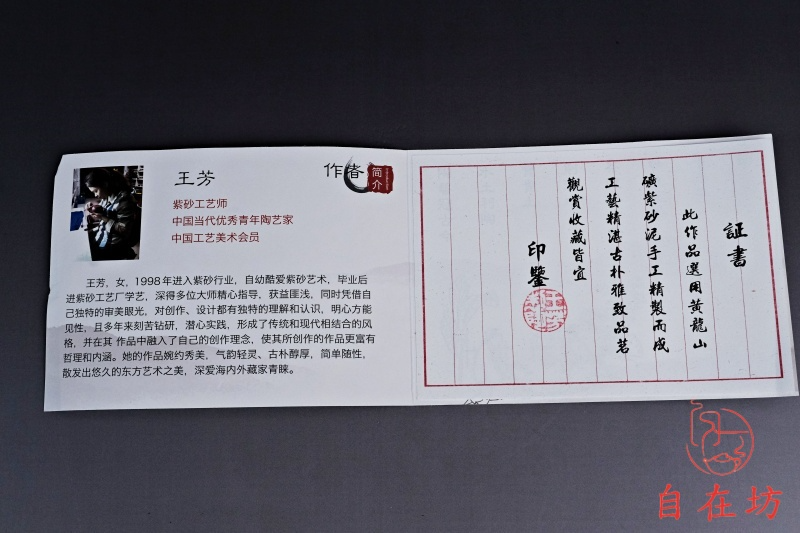 王芳
作者
简介
紫砂工艺师
中国当代优秀青年陶艺家
中国工艺美术会员
王芳，女，1998年进入紫砂行业，自幼酷爱紫砂艺术，毕业后
进紫砂工艺厂学艺，深得多位大师精心指导，获益匪浅，同时凭借自
己独特的审美眼光，对创作、设计都有独特的理解和认识，明心方能
见性，且多年来刻苦钻研，潜心实践，形成了传统和现代相结合的风
格，并在其 作品中融入了自己的创作理念，使其所创作的作品更富有
哲理和内涵。她的作品婉约秀美，气韵轻灵、古朴醇厚，简单随性，
散发出悠久的东方艺术之美，深爱海内外藏家青睐。
証書
此作品選用黄龍山
礦紫砂泥手工精製而成
工藝精湛古朴雅致品茗
觀賞收藏皆宜
印鑒
自在坊